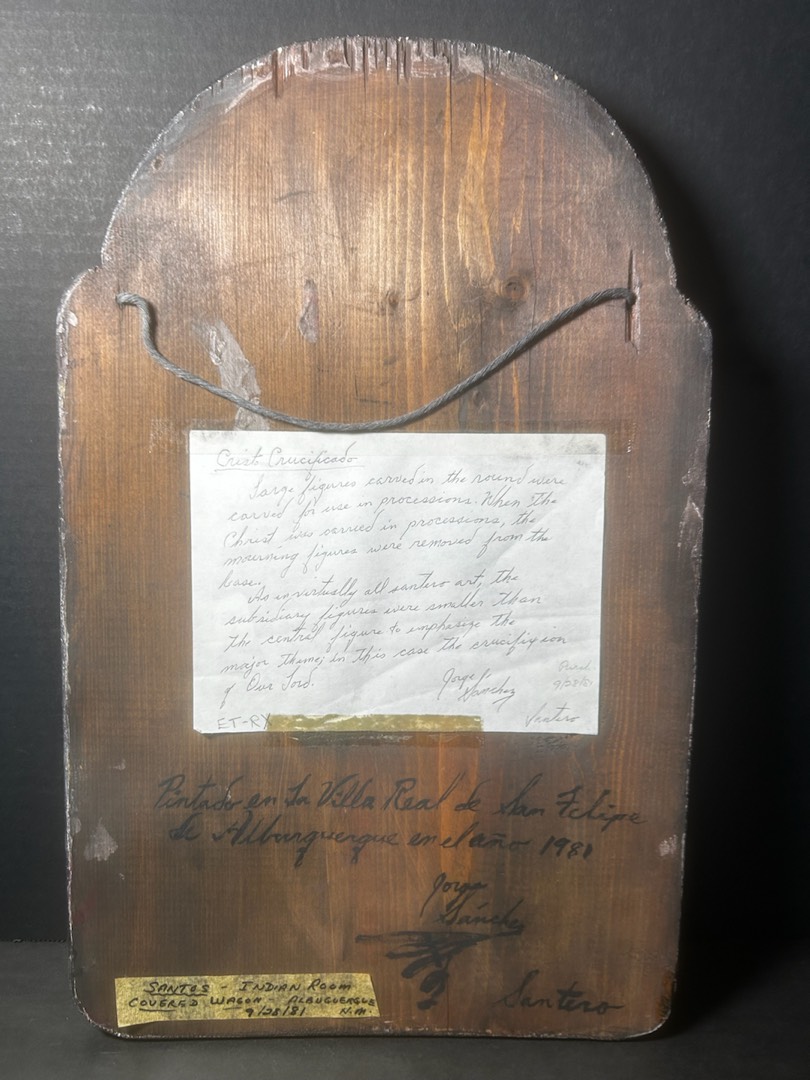 Cristo Crucificado
Large figures carved in the round were
carved for use in processions. When the
Christ was carried in processions, the
mourning figures were removed from the
base.
As in virtually all santero art, the
subsidiary figures were smaller than
the central figure to emphesize the
major theme; in this case the crucifixion
of Our Lord.
Jorge
Sanchez
Purch.
9/28/81
Santero
ET-RX
Pintado en La Villa Real de San Felipe
de Alburquerque en el año 1981
Jorge
Sánchez
Santero
SANTOS - INDIAN ROOM
COVERED WAGON - ALBUQUERQUE
9/28/81 N.M.